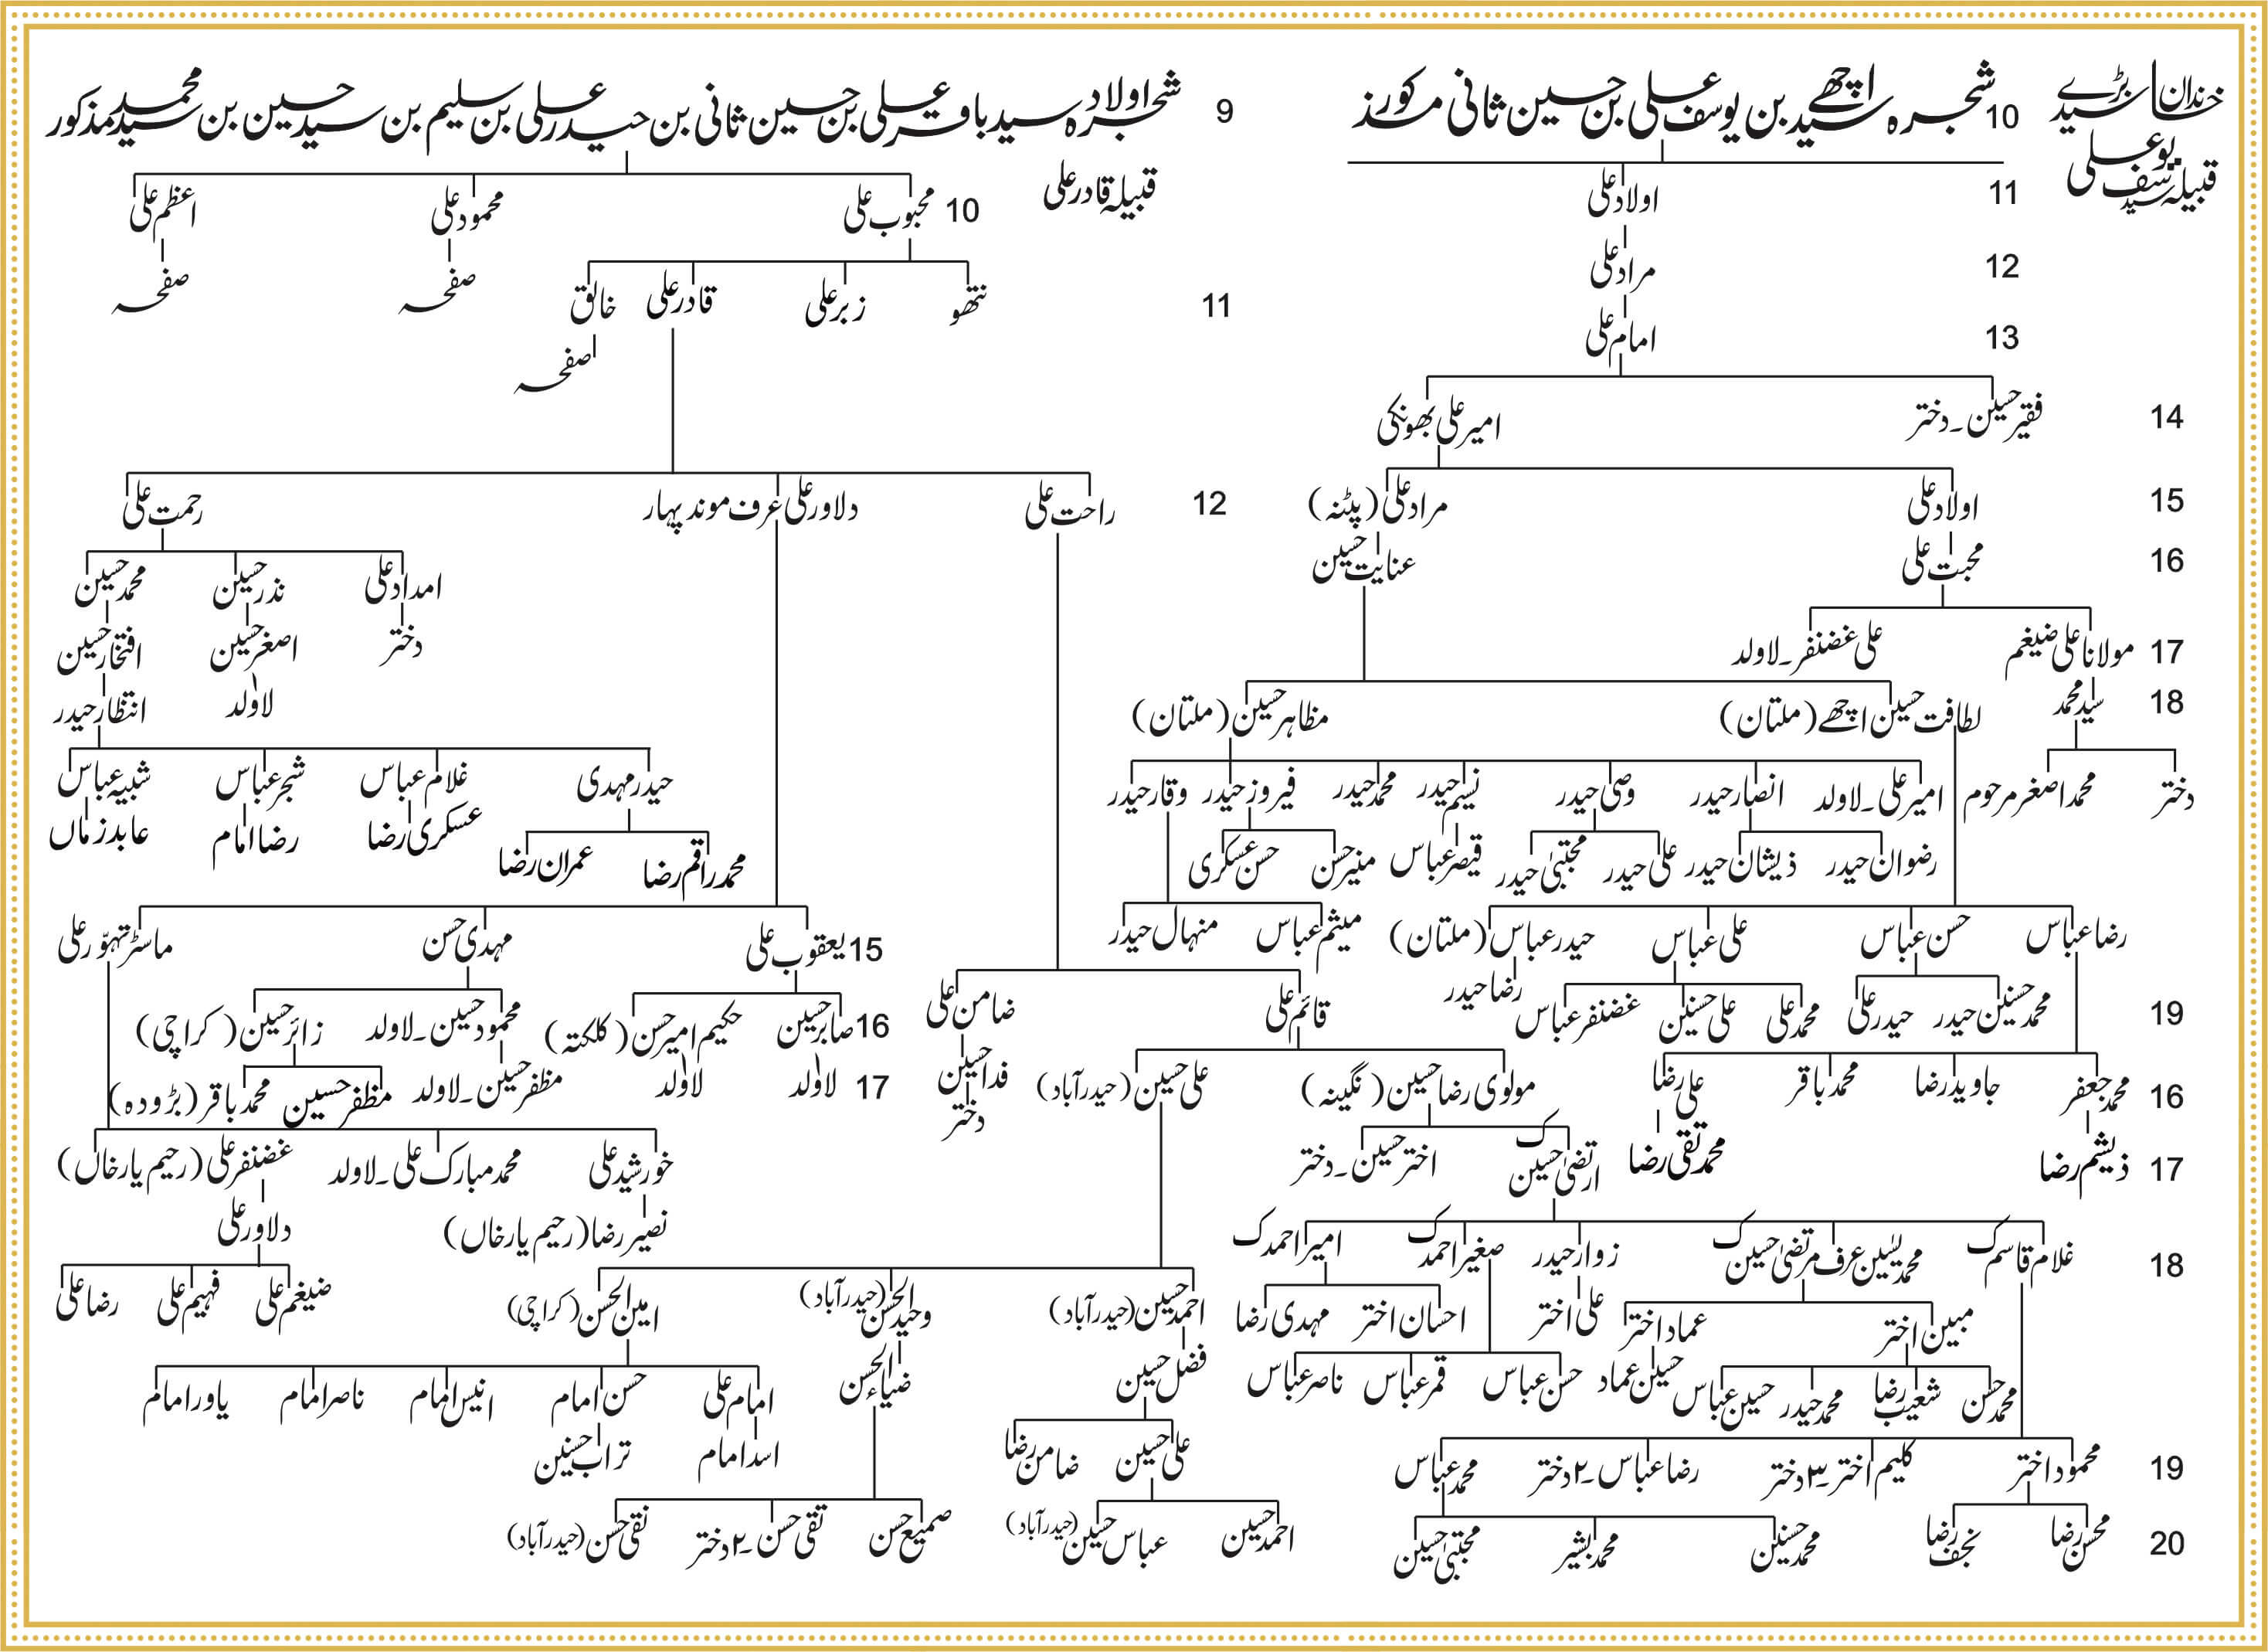 خاندان سید بڑے
قبیلہ سید یوسف علی
10 شجرہ سید اچھے بن یوسف علی بن حسین ثانی مذکورز
9 شجرہ اولاد سید باقر علی بن حسین ثانی بن حیدر علی بن سلیم بن سید حسین بن سید محمد مذکور
قبیلہ قادر علی
11 اولاد علی
12 مراد علی
13 امام علی
14 فقیر حسین۔دختر امیر علی بھونکی
15 اولاد علی مراد علی (پٹنہ)
16 محبت علی عنایت حسین
17 مولانا علی ضیغم علی غضنفر۔لاولد
18 سید محمد لطافت حسین اچھے (ملتان) مظاہر حسین (ملتان)
دختر محمد اصغر مرحوم امیر علی۔لاولد انصار حیدر وصی حیدر نسیم حیدر محمد حیدر فیروز حیدر وقار حیدر
رضوان حیدر ذیشان حیدر علی حیدر مجتبیٰ حیدر قیصر عباس منیر حسن حسن عسکری
رضا عباس حسن عباس علی عباس حیدر عباس (ملتان) میثم عباس منہال حیدر
19 محمد حسنین حیدر حیدر علی محمد علی علی حسنین غضنفر عباس رضا حیدر
محمد جعفر جاوید رضا محمد باقر علی رضا
ذیشم رضا محمد تقی رضا
10 محبوب علی محمود علی اعظم علی
صفحہ صفحہ
11 نتھو زبر علی قادر علی خالق
صفحہ
12 راحت علی دلاور علی عرف موند پہار رحمت علی
امداد علی نذر حسین محمد حسین
دختر اصغر حسین افتخار حسین
لاولد انتظار حیدر
حیدر مہدی غلام عباس شجر عباس شبیہ عباس
محمد راقم رضا عمران رضا عسکری رضا رضا امام عابد زماں
15 یعقوب علی مہدی حسن ماسٹر تہوّر علی
16 صابر حسین حکیم امیر حسن (کلکتہ) محمود حسین۔لاولد زائر حسین (کراچی)
17 لاولد لاولد مظفر حسین۔لاولد مظفر حسین محمد باقر (بڑودہ)
خورشید علی محمد مبارک علی۔لاولد غضنفر علی (رحیم یار خاں)
نصیر رضا (رحیم یار خاں) دلاور علی
ضیغم علی فہیم علی رضا علی
قائم علی ضامن علی
16 مولوی رضا حسین (نگینہ) علی حسین (حیدرآباد) فدا حسین
دختر
17 ارتضیٰ حسین ک اختر حسین۔دختر
18 غلام قاسم ک محمد یٰسین عرف مرتضیٰ حسین ک زوار حیدر صغیر احمد ک امیر احمد ک
مبین اختر عماد اختر علی اختر احسان اختر مہدی رضا
محمد حسن شعیب رضا محمد حیدر حسین عباس حسین عماد حسن عباس قمر عباس ناصر عباس
19 محمود اختر کلیم اختر۔۳ دختر رضا عباس۔۲ دختر محمد عباس
20 محسن رضا نجف رضا محمد حسنین محمد بشیر مجتبیٰ حسین
احمد حسین (حیدرآباد) وحید الحسن (حیدرآباد) امین الحسن (کراچی)
فضل حسین ضیاء الحسن امام علی حسن امام انیس امام ناصر امام یاور امام
علی حسین ضامن رضا اسد امام تراب حسنین
احمد حسین عباس حسین (حیدرآباد) صمیع حسن تقی حسن۔۲ دختر نقی حسن (حیدرآباد)